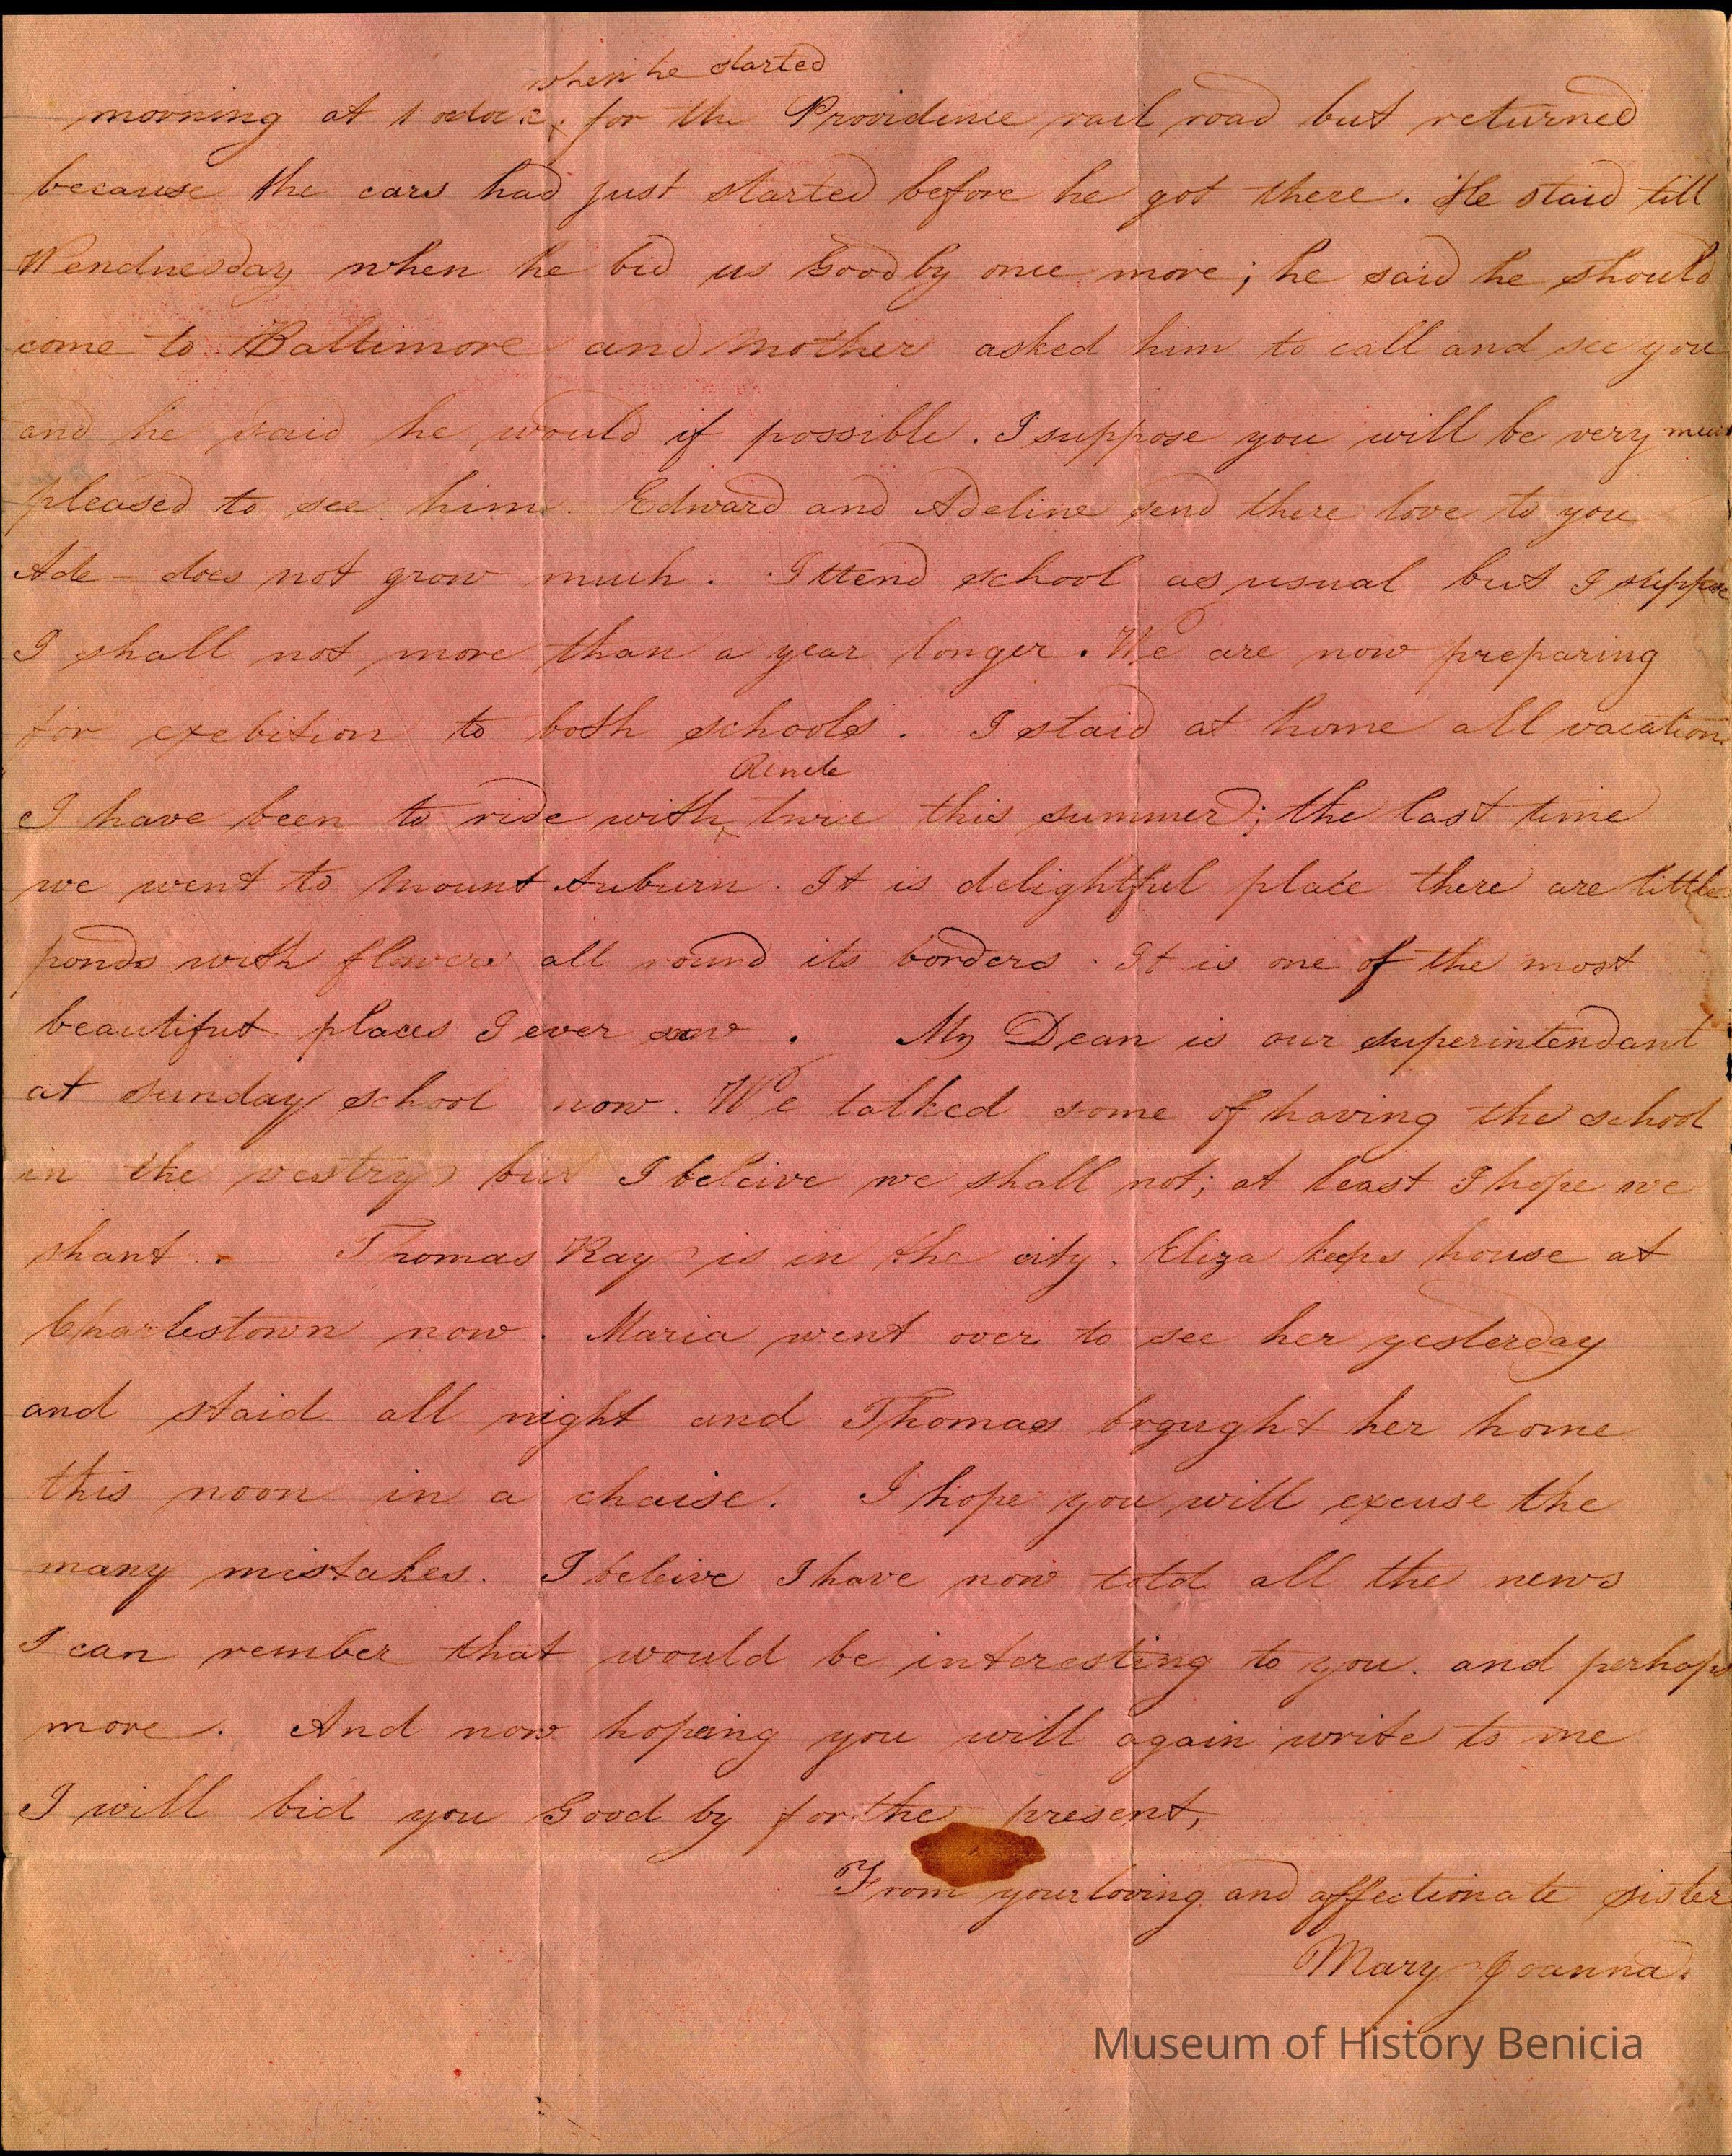 when he started
morning at 1 oclock, for the Providence rail road but returned
because the cars had just started before he got there. He staid till
Wendnesday when he bid us Good by once more; he said he should
come to Baltimore and Mother asked him to call and see you
and he said he would if possible. I suppose you will be very much
pleased to see him. Edward and Adeline send there love to you
Ade – does not grow much. I ttend school as usual but I suppose
I shall not more than a year longer. We are now preparing
for exebition to both schools. I staid at home all vacation
I have been to ride with twice this summer; the last time
we went to Mount Auburn. It is delightful place there are little
ponds with flowers all round its borders. It is one of the most
beautiful places I ever saw. Mr Dean is our superintendant
at sunday school now. We talked some of having the school
in the vestry but I beleive we shall not; at least I hope we
shant. Thomas Ray is in the city. Eliza keeps house at
Charlestown now. Maria went over to see her yesterday
and staid all night and Thomas brought her home
this noon in a chaise. I hope you will excuse the
many mistakes. I beleive I have now told all the news
I can rember that would be interesting to you. and perhaps
more. And now hopeing you will again write to me
I will bid you Good by for the present,
From your loving and affectionate sister
Mary Joanna.
Museum of History Benicia